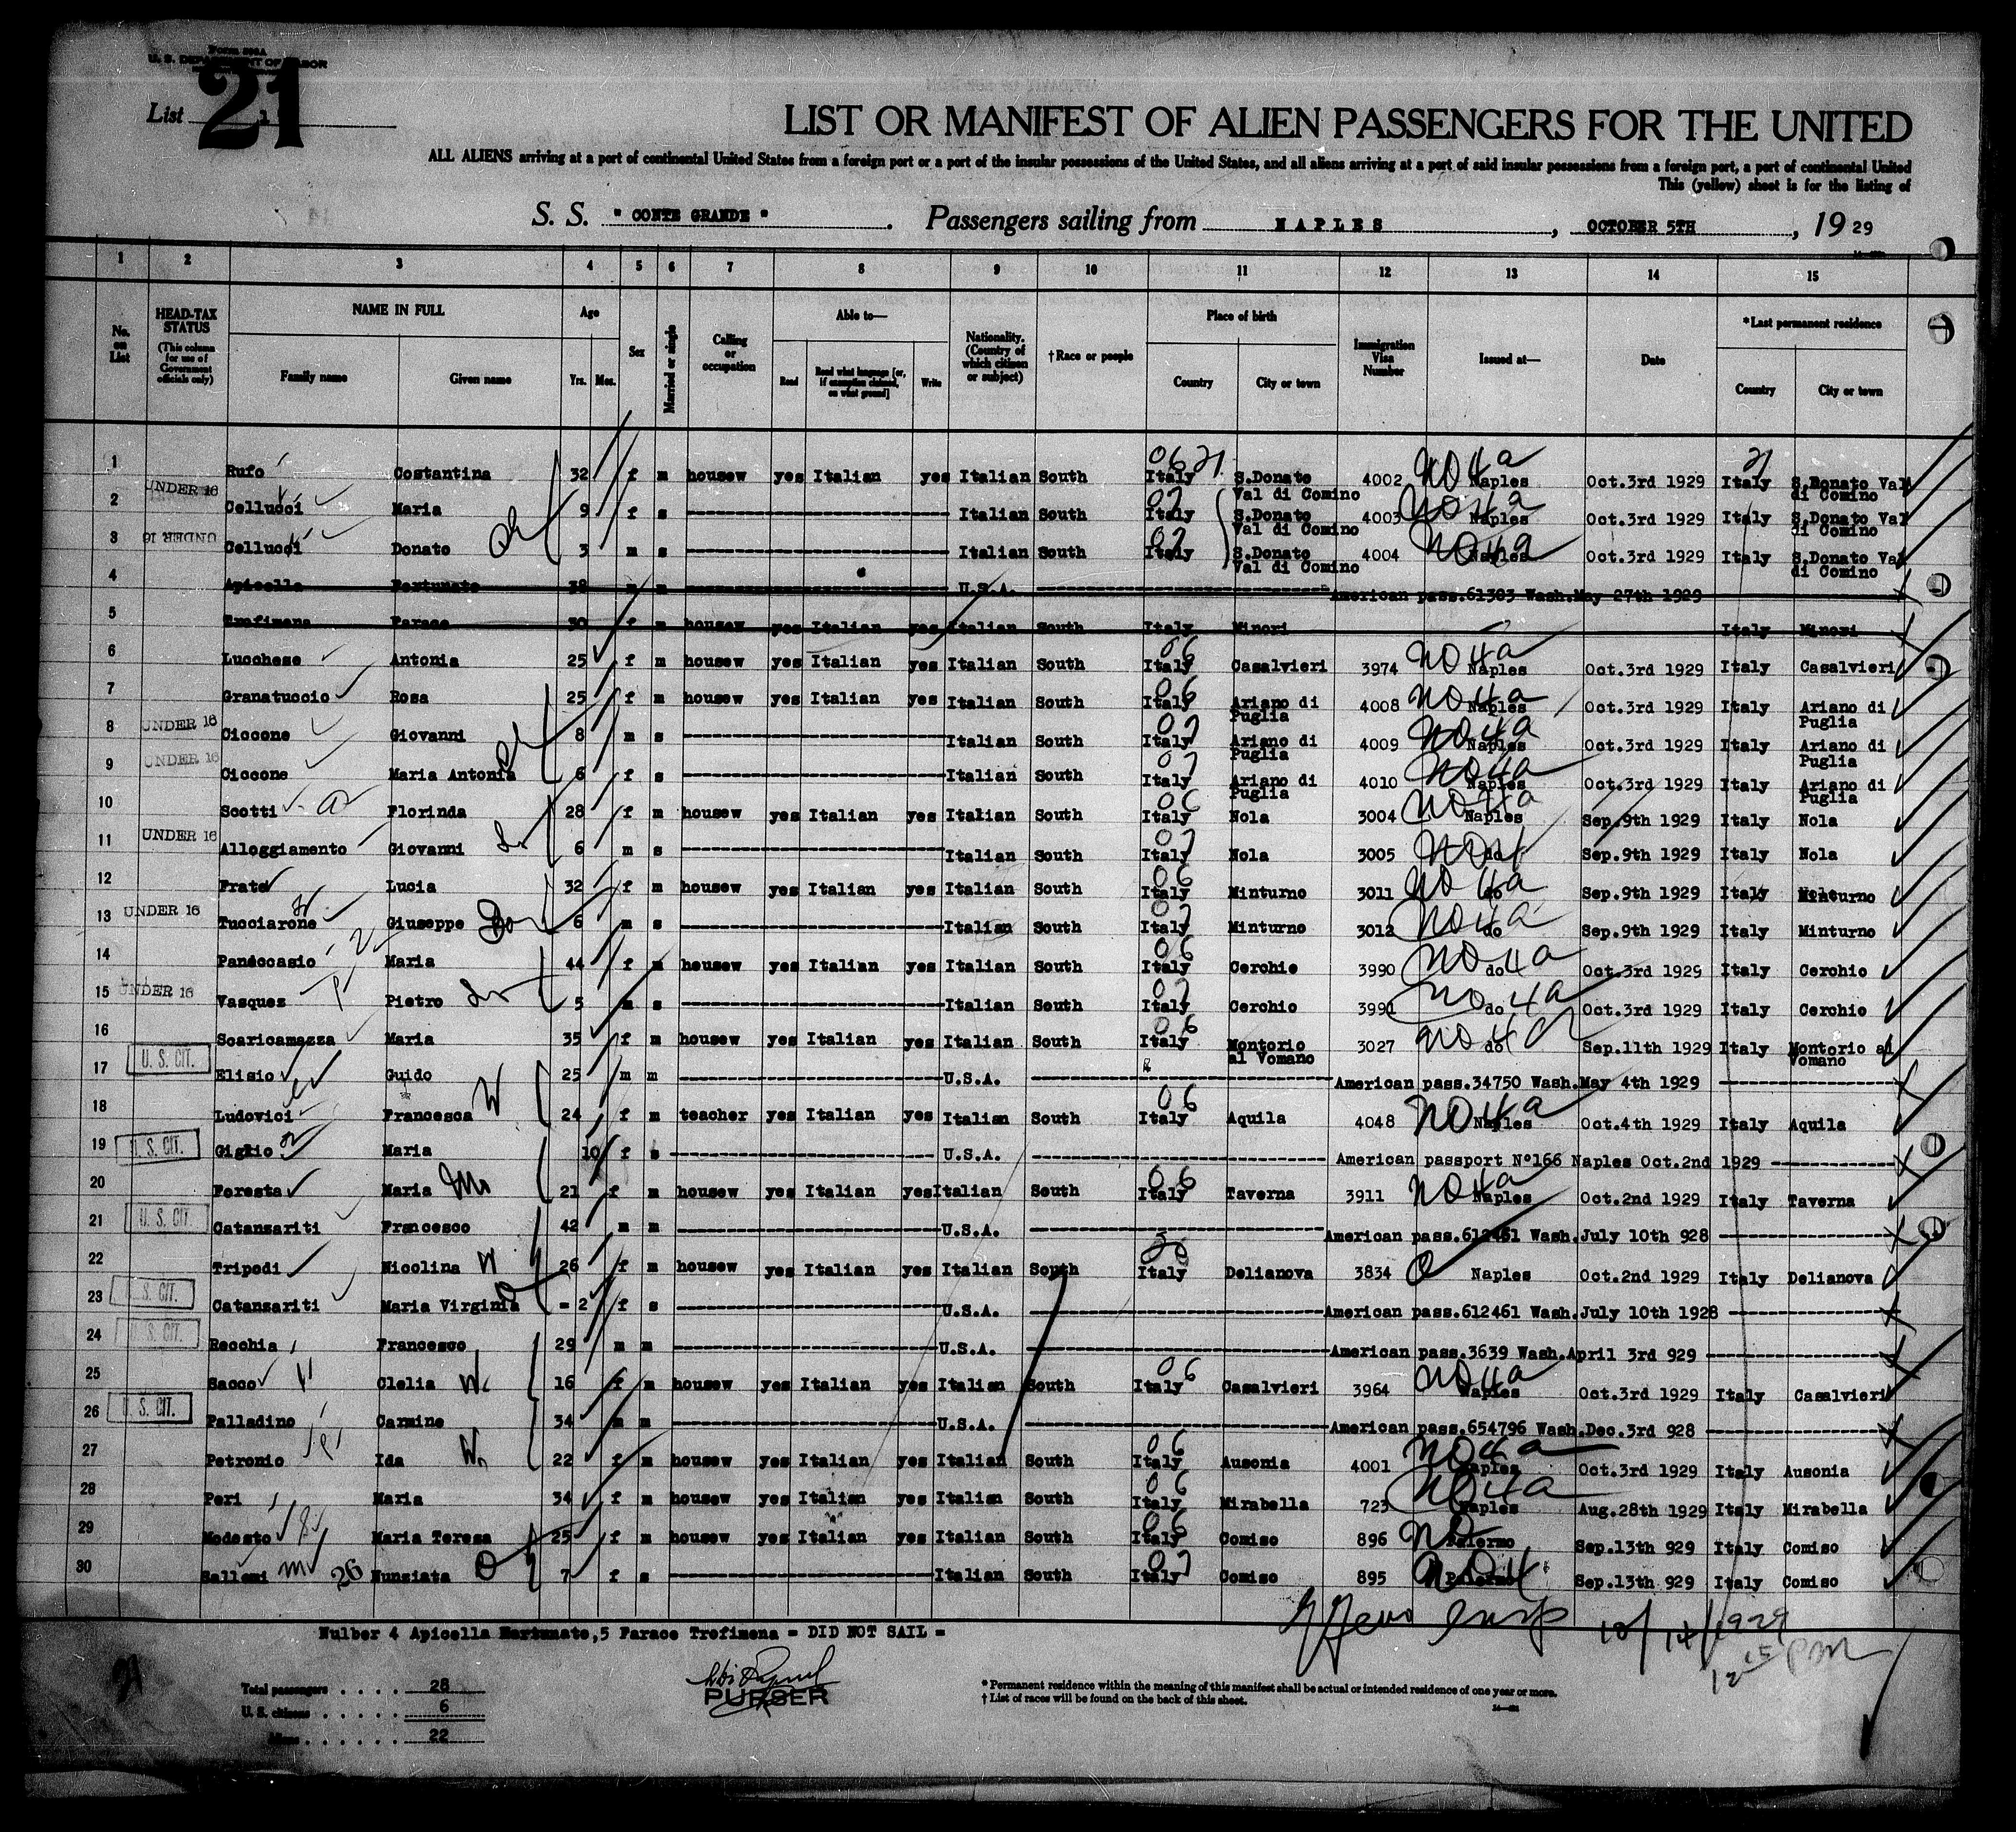 Form 500A
U. S. DEPARTMENT OF LABOR
List 21
LIST OR MANIFEST OF ALIEN PASSENGERS FOR THE UNITED
ALL ALIENS arriving at a port of continental United States from a foreign port or a port of the insular possessions of the United States, and all aliens arriving at a port of said insular possessions from a foreign port, a port of continental United
This (yellow) sheet is for the listing of
S. S. " CONTE GRANDE " . Passengers sailing from NAPLES , OCTOBER 5TH , 19 29
1 2 3 4 5 6 7 8 9 10 11 12 13 14 15
No. on List
HEAD-TAX STATUS (This column for use of Government officials only)
NAME IN FULL Family name Given name
Age Yrs. Mos.
Sex
Married or single
Calling or occupation
Able to— Read Read what language [or, if exemption claimed, on what ground] Write
Nationality. (Country of which citizen or subject)
†Race or people
Place of birth Country City or town
Immigration Visa Number
Issued at—
Date
*Last permanent residence Country City or town
1 Rufo Costantina 32 f m housew yes Italian yes Italian South Italy S.Donato Val di Comino 4002 Naples Oct.3rd 1929 Italy S.Donato Val di Comino
2 UNDER 16 Cellucci Maria 9 f s Italian South Italy S.Donato Val di Comino 4003 Naples Oct.3rd 1929 Italy S.Donato Val di Comino
3 UNDER 16 Cellucci Donato 3 m s Italian South Italy S.Donato Val di Comino 4004 Naples Oct.3rd 1929 Italy S.Donato Val di Comino
4 Apicella Fortunato 38 m m U.S.A. American pass.61303 Wash.May 27th 1929
5 Trofimena Farace 30 f m housew yes Italian yes Italian South Italy Minori Italy Minori
6 Lucchese Antonia 25 f m housew yes Italian yes Italian South Italy Casalvieri 3974 Naples Oct.3rd 1929 Italy Casalvieri
7 Granatuccio Rosa 25 f m housew yes Italian yes Italian South Italy Ariano di Puglia 4008 Naples Oct.3rd 1929 Italy Ariano di Puglia
8 UNDER 16 Ciccone Giovanni 8 m s Italian South Italy Ariano di Puglia 4009 Naples Oct.3rd 1929 Italy Ariano di Puglia
9 UNDER 16 Ciccone Maria Antonia 6 f s Italian South Italy Ariano di Puglia 4010 Naples Oct.3rd 1929 Italy Ariano di Puglia
10 Scotti Florinda 28 f m housew yes Italian yes Italian South Italy Nola 3004 Naples Sep.9th 1929 Italy Nola
11 UNDER 16 Alloggiamento Giovanni 6 m s Italian South Italy Nola 3005 do Sep.9th 1929 Italy Nola
12 Prato Lucia 32 f m housew yes Italian yes Italian South Italy Minturno 3011 do Sep.9th 1929 Italy Minturno
13 UNDER 16 Tucciarone Giuseppe 6 m s Italian South Italy Minturno 3012 do Sep.9th 1929 Italy Minturno
14 Panaccasio Maria 44 f m housew yes Italian yes Italian South Italy Cerchio 3990 do Oct.3rd 1929 Italy Cerchio
15 UNDER 16 Vasques Pietro 5 m s Italian South Italy Cerchio 3991 do Oct.3rd 1929 Italy Cerchio
16 Scaricamazza Maria 35 f m housew yes Italian yes Italian South Italy Montorio al Vomano 3027 do Sep.11th 1929 Italy Montorio al Vomano
17 U. S. CIT. Elisio Guido 25 m m U.S.A. American pass.34750 Wash.May 4th 1929
18 Ludovici Francesca 24 f m teacher yes Italian yes Italian South Italy Aquila 4048 Naples Oct.4th 1929 Italy Aquila
19 U. S. CIT. Giglio Maria 10 f s U.S.A. American passport N°166 Naples Oct.2nd 1929
20 Foresta Maria 21 f m housew yes Italian yes Italian South Italy Taverna 3911 Naples Oct.2nd 1929 Italy Taverna
21 U. S. CIT. Catanzariti Francesco 42 m m U.S.A. American pass.612461 Wash.July 10th 928
22 Tripodi Nicolina 26 f m housew yes Italian yes Italian South Italy Delianova 3834 Naples Oct.2nd 1929 Italy Delianova
23 U. S. CIT. Catanzariti Maria Virginia - 2 f s U.S.A. American pass.612461 Wash.July 10th 1928
24 U. S. CIT. Recchia Francesco 29 m m U.S.A. American pass.3639 Wash.April 3rd 929
25 Sacco Clelia 16 f m housew yes Italian yes Italian South Italy Casalvieri 3964 Naples Oct.3rd 1929 Italy Casalvieri
26 U. S. CIT. Palladino Carmine 34 m m U.S.A. American pass.654796 Wash.Dec.3rd 928
27 Petronio Ida 22 f m housew yes Italian yes Italian South Italy Ausonia 4001 Naples Oct.3rd 1929 Italy Ausonia
28 Peri Maria 34 f m housew yes Italian yes Italian South Italy Mirabella 723 Naples Aug.28th 1929 Italy Mirabella
29 Modesto Maria Teresa 25 f m housew yes Italian yes Italian South Italy Comiso 896 Palermo Sep.13th 929 Italy Comiso
30 Sallemi 26 Nunziata 7 f s Italian South Italy Comiso 895 Palermo Sep.13th 929 Italy Comiso
Nulber 4 Apicella Fortunato,5 Farace Trofimena = DID NOT SAIL =
10/14/1929
12 15 PM
Total passengers . . . . 28
U. S. citizens . . . . . 6
Aliens . . . . . . 22
PURSER
* Permanent residence within the meaning of this manifest shall be actual or intended residence of one year or more.
† List of races will be found on the back of this sheet.